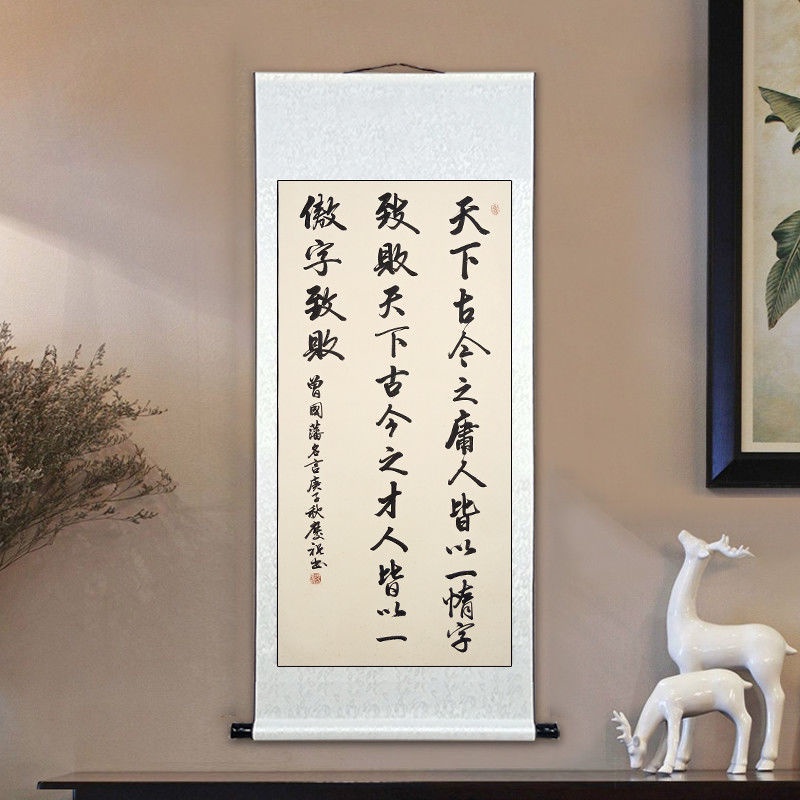 天下古今之庸人皆以一惰字
致敗天下古今之才人皆以一
傲字致敗
曾國藩名言庚子秋